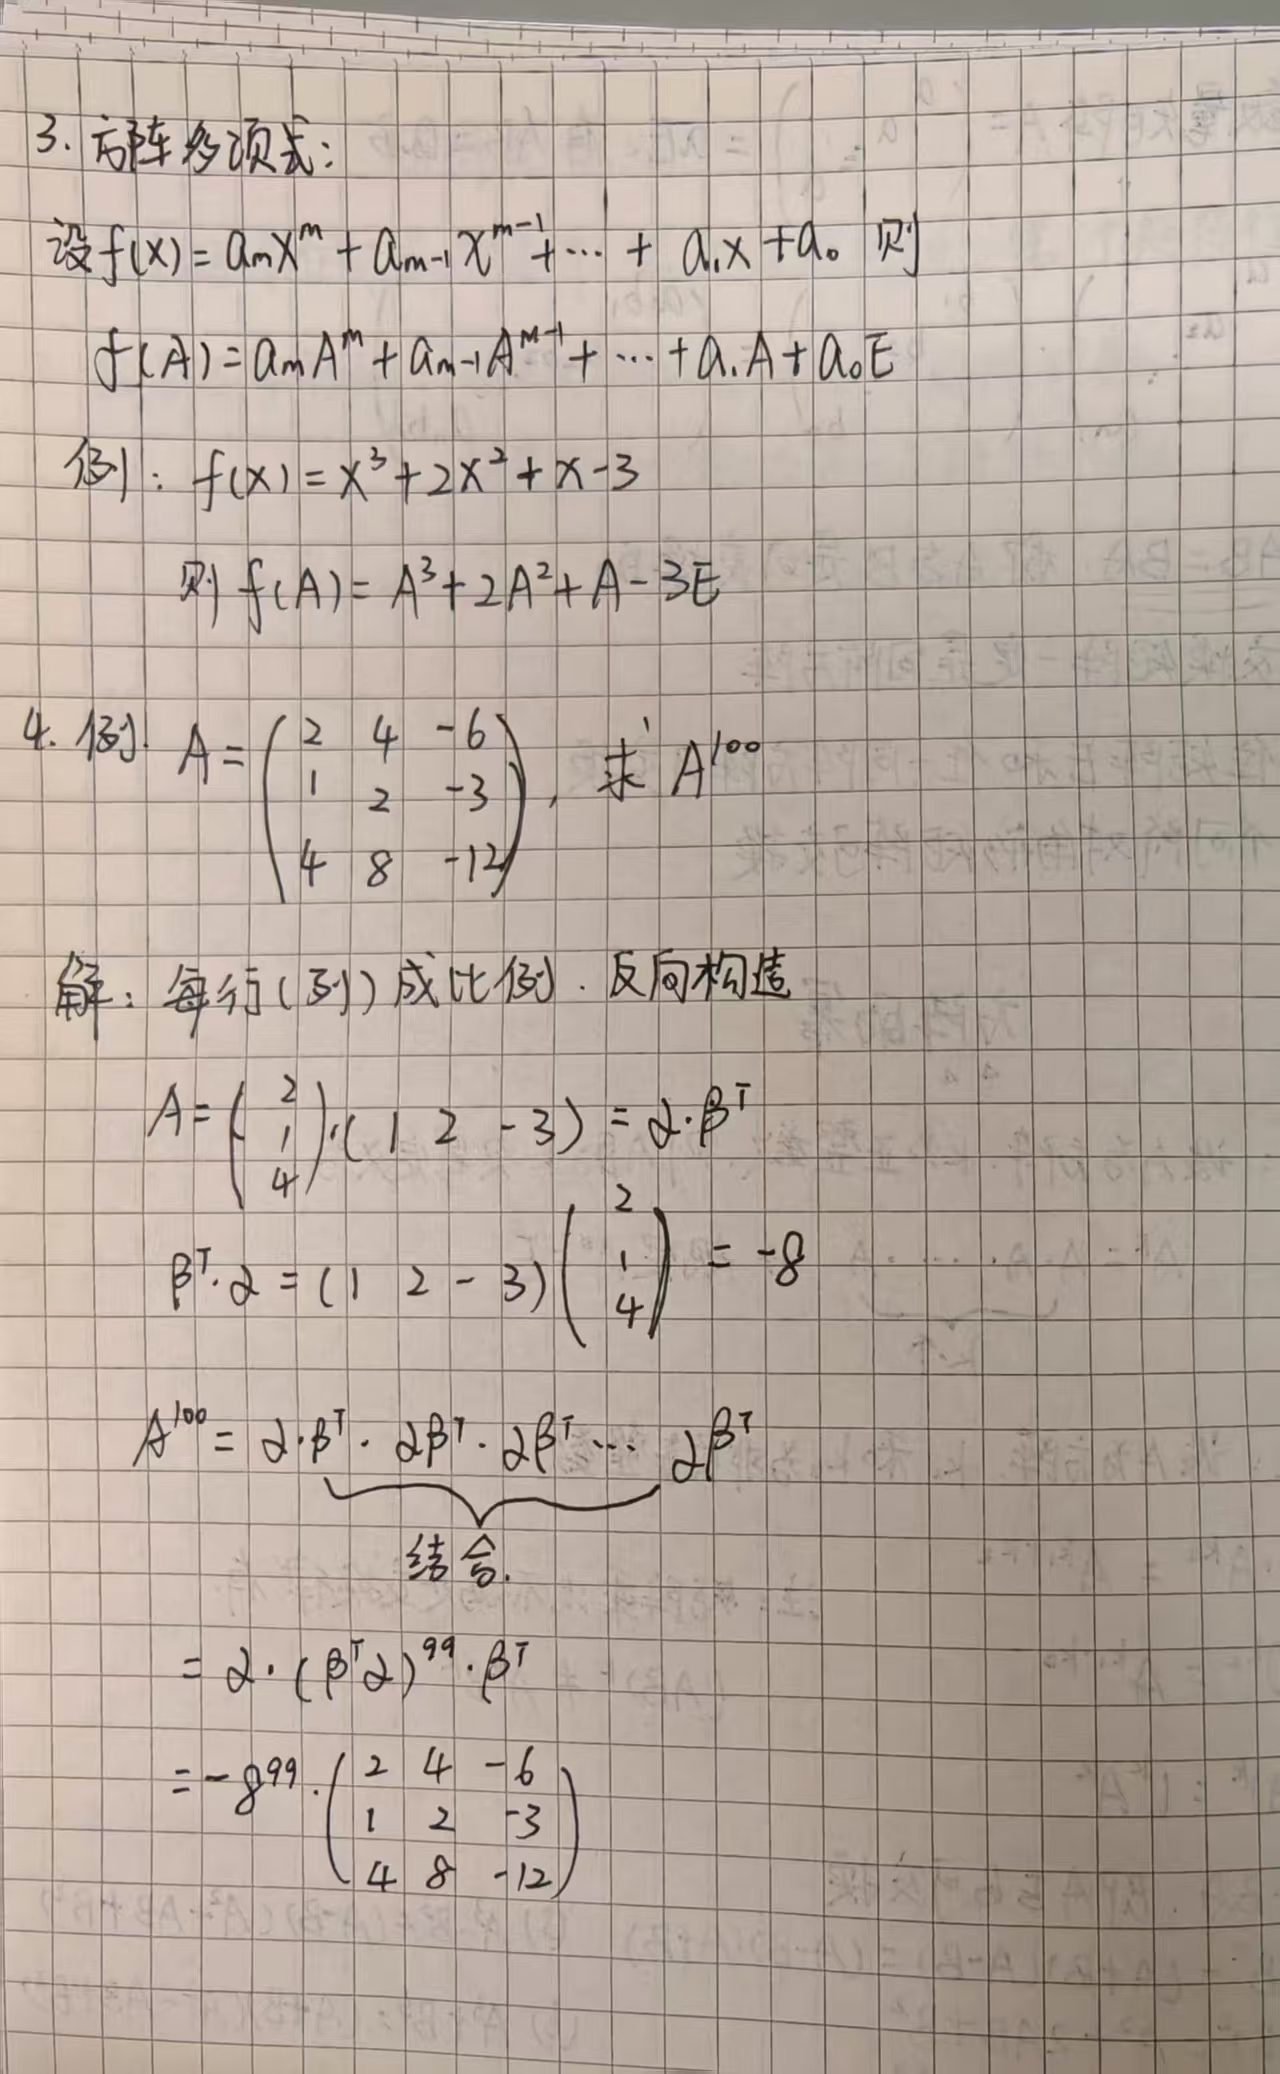 3. 方阵多项式:
设f(x)=aₘxᵐ+aₘ₋₁xᵐ⁻¹+⋯+a₁x+a₀ 则
f(A)=aₘAᵐ+aₘ₋₁Aᵐ⁻¹+⋯+a₁A+a₀E
例: f(x)=x³+2x²+x-3
则 f(A)=A³+2A²+A-3E
4. 例. A=(2 4 -6
1 2 -3
4 8 -12), 求 A¹⁰⁰
解: 每行(列)成比例. 反向构造
A=(2
1
4)·(1 2 -3)=α·βᵀ
βᵀ·α=(1 2 -3)(2
1
4)=-8
A¹⁰⁰=α·βᵀ·αβᵀ·αβᵀ⋯αβᵀ
结合.
=α·(βᵀα)⁹⁹·βᵀ
=-8⁹⁹·(2 4 -6
1 2 -3
4 8 -12)